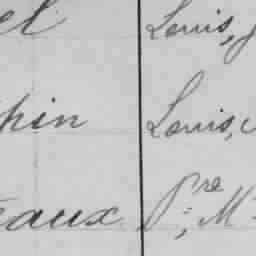 el Louis, J
pin Louis,
eaux Pre, M